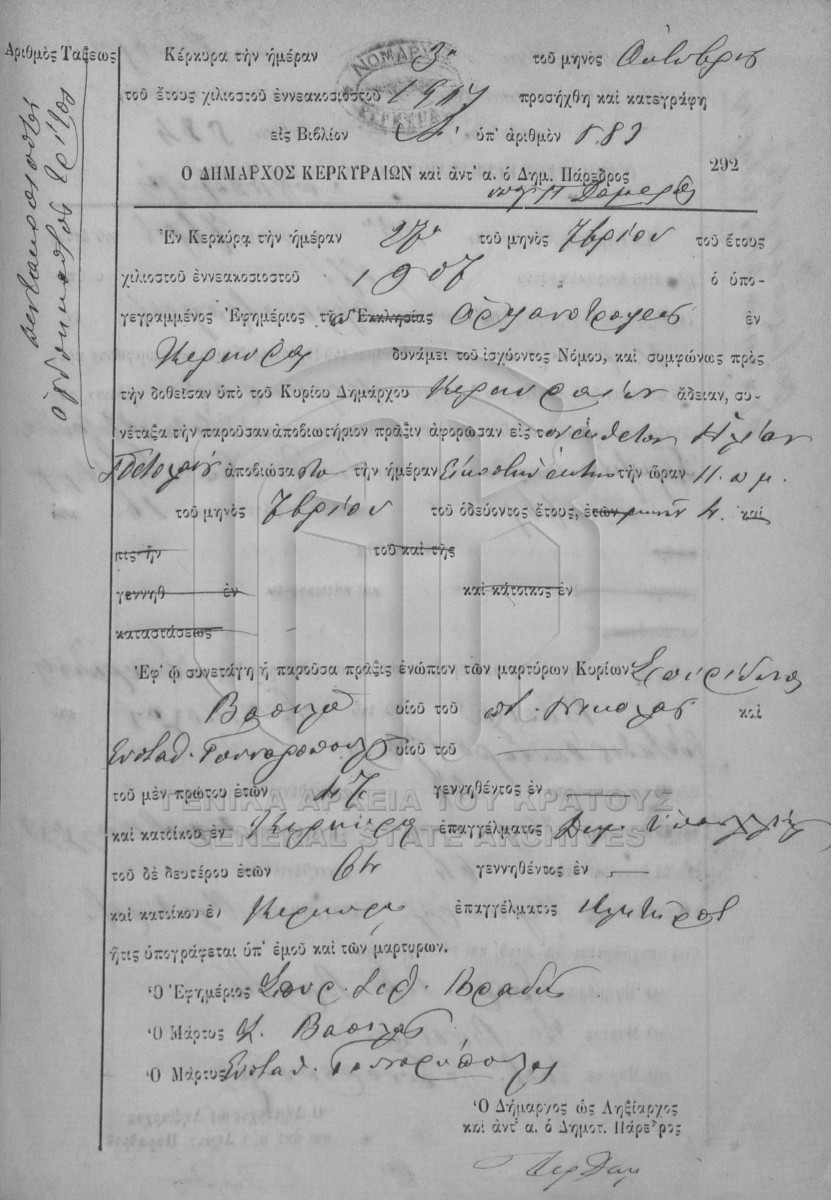 Ἀριθμὸς Τάξεως
πεντακοσιοστὸς
ὀγδοηκοστὸς τρίτος
Κέρκυρα τὴν ἡμέραν 3η τοῦ μηνὸς
τοῦ ἔτους χιλιοστοῦ ἐννεακοσιοστοῦ 1907 προσήχθη καὶ κατεγράφη
εἰς Βιβλίον Α' ὑπ' ἀριθμὸν 583
292
Ὁ ΔΗΜΑΡΧΟΣ ΚΕΡΚΥΡΑΙΩΝ καὶ ἀντ' α. ὁ Δημ. Πάρεδρος
Ἐν Κερκύρᾳ τὴν ἡμέραν 27η τοῦ μηνὸς 7βρίου τοῦ ἔτους
χιλιοστοῦ ἐννεακοσιοστοῦ 1907 ὁ ὑπο-
γεγραμμένος Ἐφημέριος τῆς Ἐκκλησίας Ὀρφανοτροφείου ἐν
Κερκύρᾳ δυνάμει τοῦ ἰσχύοντος Νόμου, καὶ συμφώνως πρὸς
τὴν δοθεῖσαν ὑπὸ τοῦ Κυρίου Δημάρχου Κερκυραίων ἄδειαν, συ-
νέταξα τὴν παροῦσαν ἀποβιωτήριον πρᾶξιν ἀφορῶσαν εἰς τὸν ἔκθετον Ἠλίαν
ἀποβιώσαντα τὴν ἡμέραν Εἰκοστὴν ἕκτην τὴν ὥραν 11. π μ.
τοῦ μηνὸς 7βρίου τοῦ ὁδεύοντος ἔτους, ἐτῶν μηνῶν 4. καὶ
τις ἦν τοῦ καὶ τῆς
γεννηθ ἐν καὶ κάτοικος ἐν
καταστάσεως
Ἐφ' ᾧ συνετάγη ἡ παροῦσα πρᾶξις ἐνώπιον τῶν μαρτύρων Κυρίων Σπυρίδωνος
Βασιλᾶ υἱοῦ τοῦ Νικολάου καὶ
Ευσταθ. υἱοῦ τοῦ
τοῦ μὲν πρώτου ἐτῶν 47 γεννηθέντος ἐν
ΓΕΝΙΚΑ ΑΡΧΕΙΑ ΤΟΥ ΚΡΑΤΟΥΣ
καὶ κατοίκου ἐν Κερκύρᾳ ἐπαγγέλματος Δημ. Ὑπαλλήλου
GENERAL STATE ARCHIVES
τοῦ δὲ δευτέρου ἐτῶν 64 γεννηθέντος ἐν
καὶ κατοίκου ἐν Κερκύρᾳ ἐπαγγέλματος κλητῆρος
ἥτις ὑπογράφεται ὑπ' ἐμοῦ καὶ τῶν μαρτύρων.
Ὁ Ἐφημέριος Σπυρ.
Ὁ Μάρτυς Σ. Βασιλᾶς
Ὁ Μάρτυς Ευσταθ.
Ὁ Δήμαρχος ὡς Ληξίαρχος
καὶ ἀντ' α. ὁ Δημοτ. Πάρεδρος